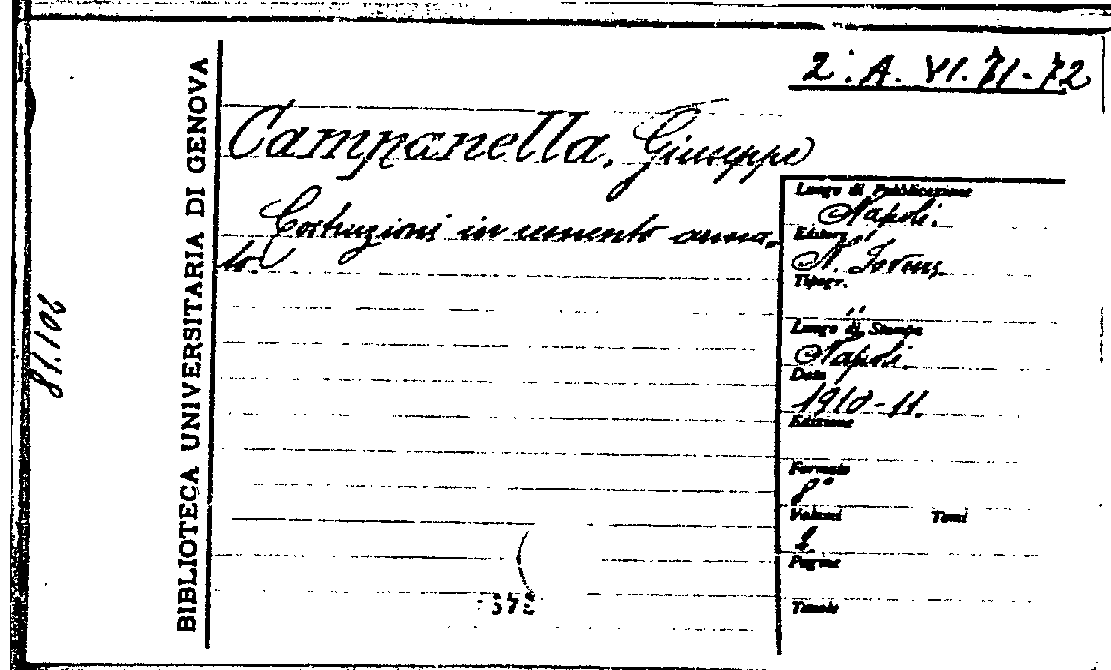 2ª. A. VI. 71-72
BIBLIOTECA UNIVERSITARIA DI GENOVA
81.106
Campanella, Giuseppe
Costruzioni in cemento arma-
to.
Luogo di Pubblicazione
Napoli.
Editore
N. Jovene
Tipogr.
"
Luogo di Stampa
Napoli.
Data
1910-11.
Edizione
Formato
8°
Volumi Tomi
2
Pagine
Tavole